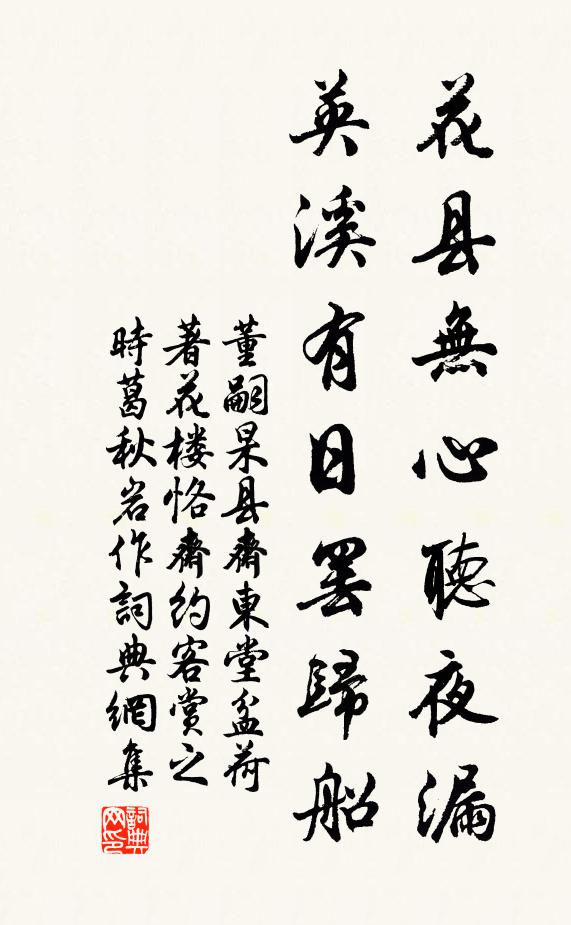 花县無心聽夜漏
英溪有日罢歸船
董嗣杲县齋東堂盆荷
著花楼恪齋約客賞之
時葛秋岩作詞典網集
詞典網印